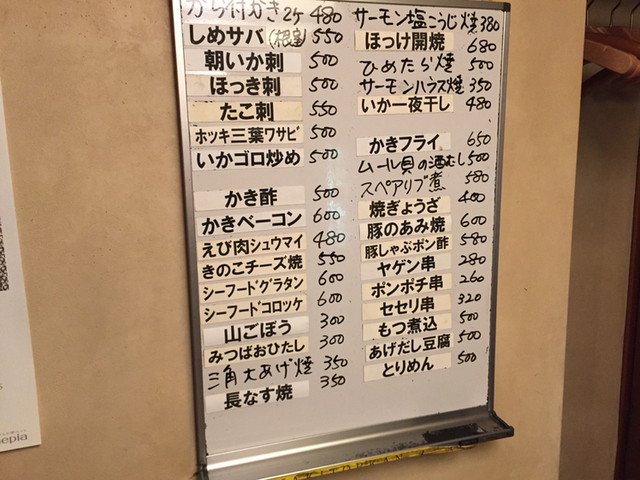 から付かき2ケ 480
しめサバ(根室) 550
朝いか刺 500
ほっき刺 500
たこ刺 550
ホッキ三葉ワサビ 500
いかゴロ炒め 500
かき酢 500
かきベーコン 600
えび肉シュウマイ 480
きのこチーズ焼 550
シーフードグラタン 600
シーフードコロッケ 600
山ごぼう 300
みつばおひたし 300
三角大あげ焼 350
長なす焼 350
サーモン塩こうじ焼 380
ほっけ開焼 680
ひめたら焼 500
サーモンハラス焼 350
いか一夜干し 480
かきフライ 650
ムール貝の酒むし 500
スペアリブ煮 580
焼ぎょうざ 400
豚のあみ焼 600
豚しゃぶポン酢 580
ヤゲン串 280
ボンボチ串 260
セセリ串 320
もつ煮込 500
あげだし豆腐 500
とりめん 500
epia